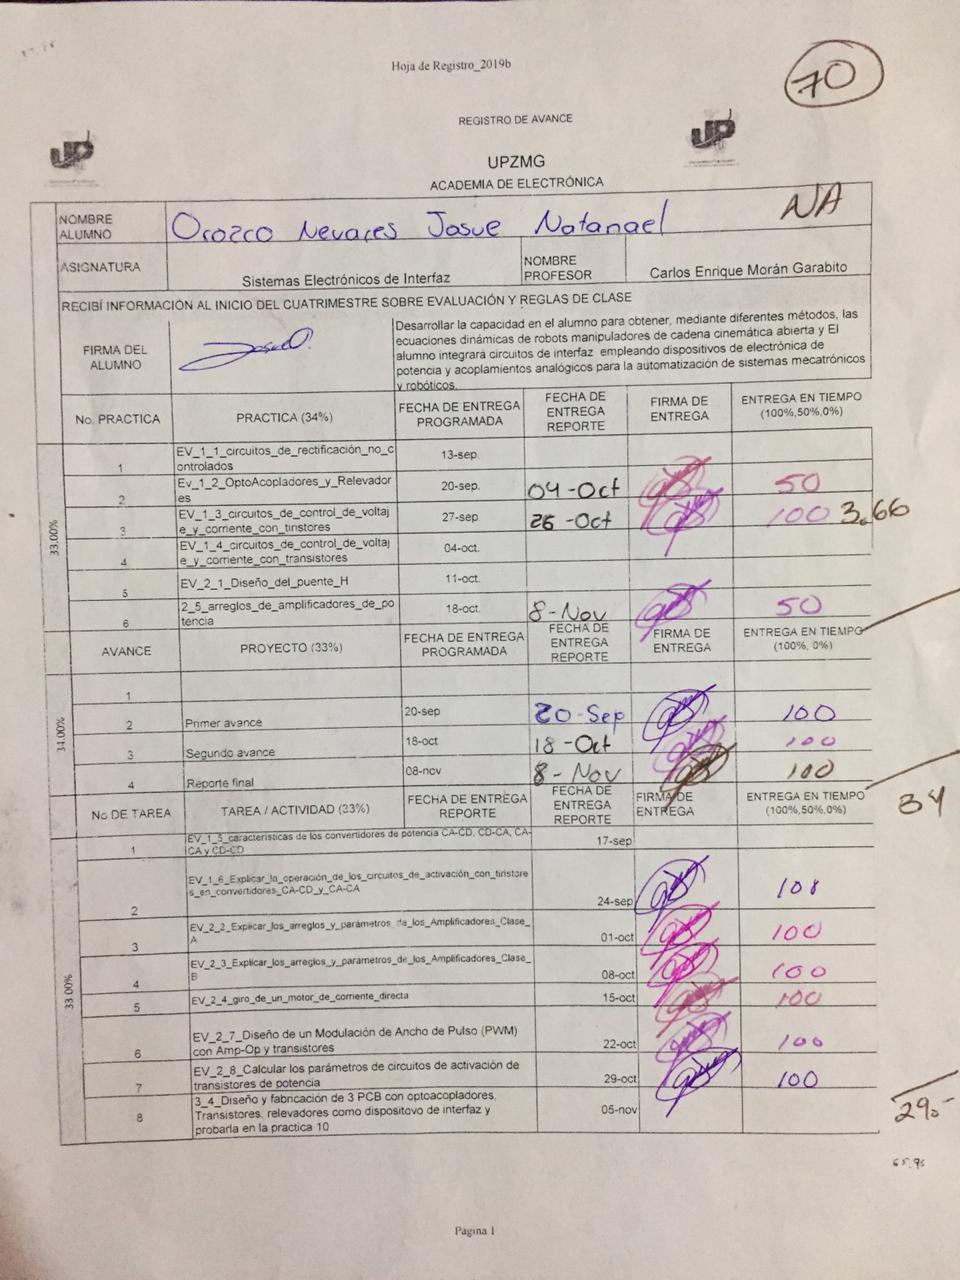 Hoja de Registro_2019b
70
REGISTRO DE AVANCE
UP
UP
UPZMG
ACADEMIA DE ELECTRÓNICA
NA
NOMBRE ALUMNO Orozco Nevares Josue Natanael
ASIGNATURA Sistemas Electrónicos de Interfaz NOMBRE PROFESOR Carlos Enrique Morán Garabito
RECIBÍ INFORMACIÓN AL INICIO DEL CUATRIMESTRE SOBRE EVALUACIÓN Y REGLAS DE CLASE
FIRMA DEL ALUMNO
Desarrollar la capacidad en el alumno para obtener, mediante diferentes métodos, las
ecuaciones dinámicas de robots manipuladores de cadena cinemática abierta y El
alumno integrará circuitos de interfaz empleando dispositivos de electrónica de
potencia y acoplamientos analógicos para la automatización de sistemas mecatrónicos
y robóticos.
No. PRACTICA PRACTICA (34%) FECHA DE ENTREGA PROGRAMADA FECHA DE ENTREGA REPORTE FIRMA DE ENTREGA ENTREGA EN TIEMPO (100%,50%,0%)
33.00%
1 EV_1_1_circuitos_de_rectificación_no_controlados 13-sep
2 Ev_1_2_OptoAcopladores_y_Relevadores 20-sep. 04-Oct 50
3 EV_1_3_circuitos_de_control_de_voltaje_y_corriente_con_tiristores 27-sep 26-Oct 100 3.66
4 EV_1_4_circuitos_de_control_de_voltaje_y_corriente_con_transistores 04-oct.
5 EV_2_1_Diseño_del_puente_H 11-oct.
6 2_5_arreglos_de_amplificadores_de_potencia 18-oct. 8-Nov 50
AVANCE PROYECTO (33%) FECHA DE ENTREGA PROGRAMADA FECHA DE ENTREGA REPORTE FIRMA DE ENTREGA ENTREGA EN TIEMPO (100%, 0%)
34.00%
1
2 Primer avance 20-sep 20-Sep 100
3 Segundo avance 18-oct 18-Oct 100
4 Reporte final 08-nov 8-Nov 100
34
No DE TAREA TAREA / ACTIVIDAD (33%) FECHA DE ENTREGA REPORTE FECHA DE ENTREGA REPORTE FIRMA DE ENTREGA ENTREGA EN TIEMPO (100%,50%,0%)
33.00%
1 EV_1_5_caracteristicas de los convertidores de potencia CA-CD, CD-CA, CA-CA y CD-CD 17-sep
2 EV_1_6_Explicar_la_operación_de_los_circuitos_de_activación_con_tiristores_en_convertidores_CA-CD_y_CA-CA 24-sep 100
3 EV_2_2_Explicar_los_arreglos_y_parámetros_de_los_Amplificadores_Clase_A 01-oct 100
4 EV_2_3_Explicar_los_arreglos_y_parametros_de_los_Amplificadores_Clase_B 08-oct 100
5 EV_2_4_giro_de_un_motor_de_corriente_directa 15-oct 100
6 EV_2_7_Diseño de un Modulación de Ancho de Pulso (PWM) con Amp-Op y transistores 22-oct 100
7 EV_2_8_Calcular los parámetros de circuitos de activación de transistores de potencia 29-oct 100
8 3_4_Diseño y fabricación de 3 PCB con optoacopladores, Transistores, relevadores como dispositovo de interfaz y probarla en la practica 10 05-nov
29.-
Pagina 1